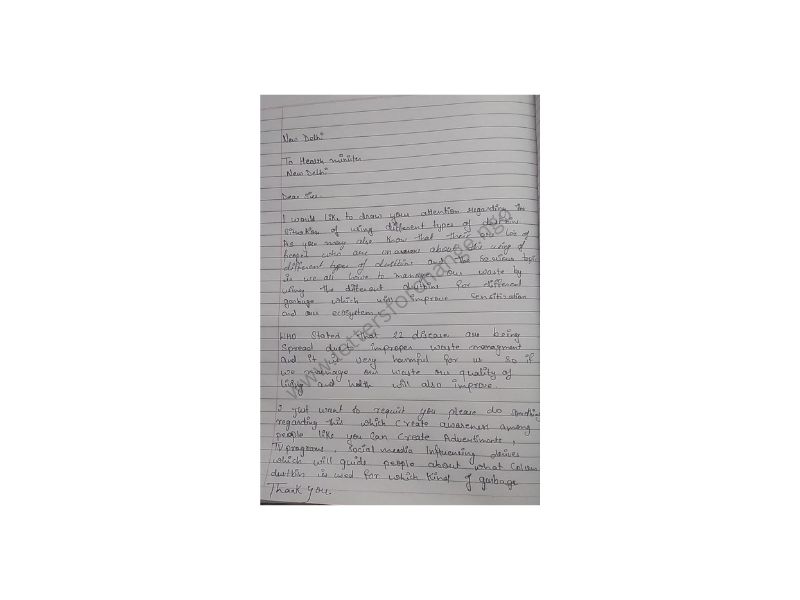 New Delhi
To Health minister
New Delhi
Dear Sir,
I would like to draw your attention regarding the
situation of using different types of dustbins
As you may also know that there are lot of
peopel who are unaware about the using of
different types of dustbins and the serious topic
is we all have to manage our waste by
using the different dustbins for different
garbage which will improve Sensitization
and our ecosystem
WHO Stated that 22 disease are being
spread due to improper waste managment
and it is very harmful for us so if
we mannage our waste our quality of
living and health will also improve.
I just want to request you please do something
regarding this which create awareness among
people like you can create Advertiments,
TV programs, social media Influencing drives
which will guide people about what Colour
dustbin is used for which kind of garbage
Thank you.
www.lettersforchange.ngo